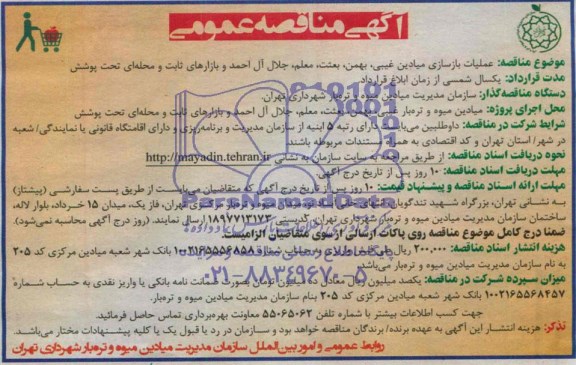 آگهی مناقصه عمومی
موضوع مناقصه: عملیات بازسازی میادین غیبی، بهمن، بعثت، معلم، جلال آل احمد و بازارهای ثابت و محله‌ای تحت پوشش
مدت قرارداد: یکسال شمسی از زمان ابلاغ قرارداد
دستگاه مناقصه‌گذار: سازمان مدیریت میادین میوه و تره‌بار شهرداری تهران
محل اجرای پروژه: میادین میوه و تره‌بار غیبی، بهمن، بعثت، معلم، جلال آل احمد و بازارهای ثابت و محله‌ای تحت پوشش
شرایط شرکت در مناقصه: داوطلبین می‌بایست دارای رتبه ۵ ابنیه از سازمان مدیریت و برنامه‌ریزی و دارای اقامتگاه قانونی یا نمایندگی/ شعبه
در شهر/ استان تهران و کد اقتصادی به همراه مستندات مربوطه باشند.
نحوه دریافت اسناد مناقصه: از طریق مراجعه به سایت سازمان به نشانی http://mayadin.tehran.ir
مهلت دریافت اسناد مناقصه: ۱۰ روز پس از تاریخ درج آگهی.
مهلت ارائه اسناد مناقصه و پیشنهاد قیمت: ۱۰ روز پس از تاریخ درج آگهی که متقاضیان می‌بایست از طریق پست سفارشی (پیشتاز)
به نشانی تهران، بزرگراه شهید تندگویان، تهران، فاز یک، میدان ۱۵ خرداد، بلوار لاله،
ساختمان سازمان مدیریت میادین میوه و تره‌بار شهرداری تهران کدپستی ۱۸۹۷۷۱۳۱۷۳ ارسال نمایند. (روز درج آگهی محاسبه نمی‌شود).
ضمنا درج کامل موضوع مناقصه روی پاکات ارسالی ازسوی متقاضیان الزامیست.
هزینه انتشار اسناد مناقصه: ۲۰۰.۰۰۰ ریال طی شماره ۱۰۰۲۱۶۵۵۶۸۵۵۸ بانک شهر شعبه میادین مرکزی کد ۲۰۵
به نام سازمان مدیریت میادین میوه و تره‌بار می‌باشد.
میزان سپرده شرکت در مناقصه: یکصد میلیون ریال معادل ده میلیون تومان بصورت ضمانت نامه بانکی یا واریز نقدی به حساب شماره
۱۰۰۲۱۶۵۵۶۸۴۵۷ بانک شهر شعبه میادین مرکزی کد ۲۰۵ بنام سازمان مدیریت میادین میوه و تره‌بار
جهت کسب اطلاعات بیشتر با شماره تلفن ۵۵۰۶۵۰۶۲ معاونت بهره‌برداری تماس حاصل فرمائید.
تذکر: هزینه انتشار این آگهی به عهده برنده/ برندگان مناقصه خواهد بود و سازمان در رد یا قبول یک یا کلیه پیشنهادات مختار می‌باشد.
روابط عمومی و امور بین‌الملل سازمان مدیریت میادین میوه و تره‌بار شهرداری تهران
ParsNamadData
۰۲۱-۸۸۳۴۹۶۷۰-۵